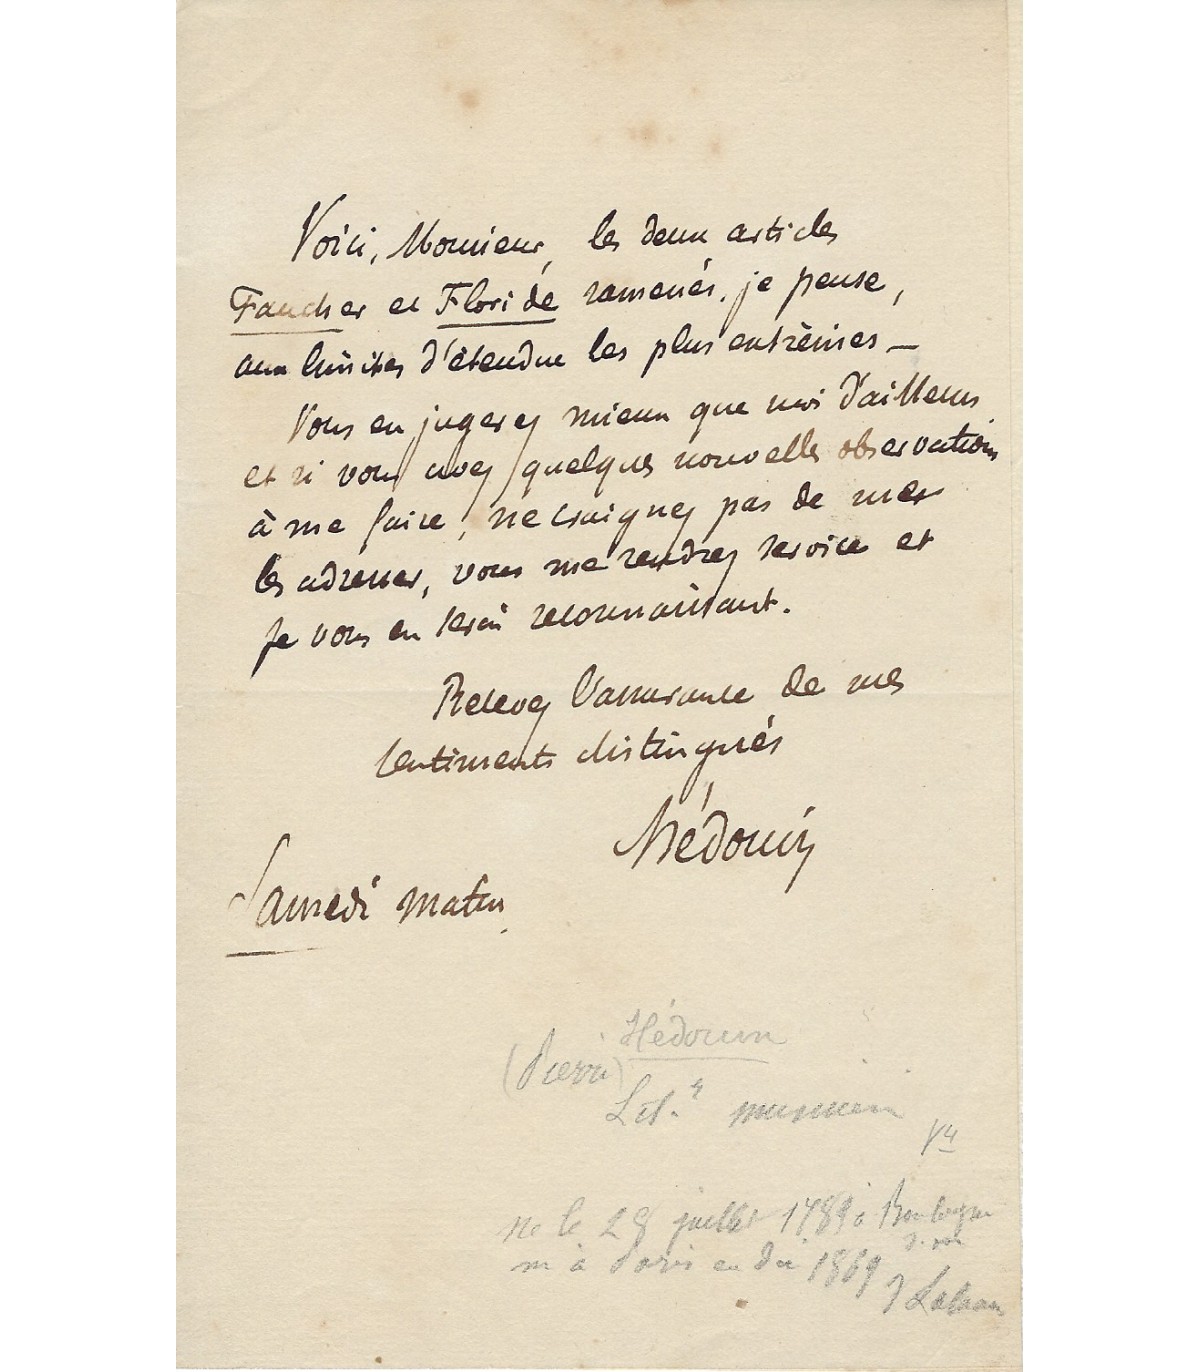 Voici, Monsieur, les deux articles
Faucher et Floride ramenés, je pense,
aux limites d'étendue les plus extrêmes —
Vous en jugerez mieux que moi d'ailleurs
et si vous avez quelques nouvelles observations
à me faire, ne craignez pas de me
les adresser, vous me rendrez service et
je vous en serai reconnaissant.
Recevez l'assurance de mes
sentiments distingués
Hédouin
Samedi matin
Hédouin
(Pierre)
Litt.r musicien
né le 28 juillet 1789 à Boulogne
s. mer
m à Paris en Xre 1869